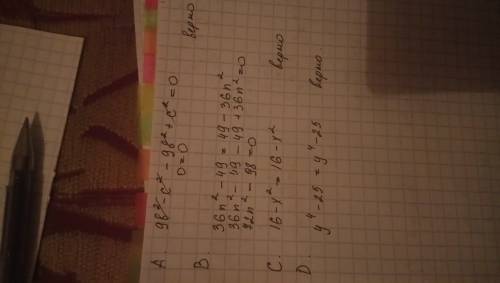 A. 9b² - c² - 9b² + c² = 0
0 = 0 верно
B.
36n² - 49 = 49 - 36n²
36n² - 49 - 49 + 36n² = 0
32n² - 98 = 0
C. 16 - x² = 16 - x² верно
D.
y⁴ - 25 = y⁴ - 25 верно